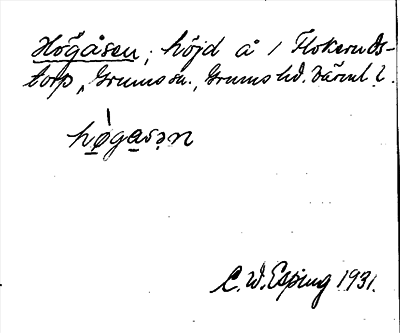 Högåsen, höjd å 1 Flokeruds-
torp, Grums sn., Grums hd. Värml.
högasen
C. W. Esping 1931.